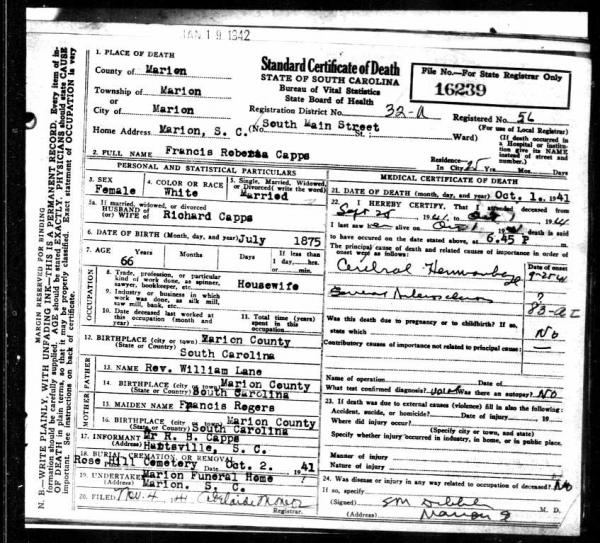 JAN 19 1942
Standard Certificate of Death
STATE OF SOUTH CAROLINA
Bureau of Vital Statistics
State Board of Health
File No.—For State Registrar Only
16239
1. PLACE OF DEATH
County of Marion
Township of Marion
or
City of Marion
Registration District No. 32-A
Registered No. 56
(For use of Local Registrar)
Home Address Marion, S. C. (No. South Main Street St.; Ward)
(If death occurred in a Hospital or institution give its NAME instead of street and number.)
2. FULL NAME Francis Capps
Residence In City 25 Yrs. Mos. Days
PERSONAL AND STATISTICAL PARTICULARS
3. SEX Female
4. COLOR OR RACE White
5. Single, Married, Widowed, or Divorced (write the word) Married
5a. If married, widowed, or divorced
HUSBAND of (or) WIFE of Richard Capps
6. DATE OF BIRTH (Month, day, and year) July 1875
7. AGE Years 66 Months Days If less than 1 day, hrs. or min.
OCCUPATION
8. Trade, profession, or particular kind of work done, as spinner, sawyer, bookkeeper, etc. Housewife
9. Industry or business in which work was done, as silk mill, saw mill, bank, etc.
10. Date deceased last worked at this occupation (month and year)
11. Total time (years) spent in this occupation
12. BIRTHPLACE (city or town) Marion County
(State or Country) South Carolina
FATHER
13. NAME Rev. William Lane
14. BIRTHPLACE (city or town) Marion County
(State or Country) South Carolina
MOTHER
15. MAIDEN NAME Francis Rogers
16. BIRTHPLACE (city or town) Marion County
(State or Country) South Carolina
17. INFORMANT Mr R. B. Capps
(Address) Hartsville, S. C.
18. BURIAL, CREMATION, OR REMOVAL
Rose Hill Cemetery Oct 2. 41
19. UNDERTAKER Marion Funeral Home
(Address) Marion. S. C.
20. FILED Nov. 4 41
Registrar.
MEDICAL CERTIFICATE OF DEATH
21. DATE OF DEATH (month, day, and year) Oct 1. 1941
22. I HEREBY CERTIFY, That I attended deceased from
Sept 25 1941, to Oct 1 1941
I last saw alive on Oct 1 1941 death is said
to have occurred on the date stated above, at 6.45 P m.
The principal cause of death and related causes of importance in order of onset were as follows:
Date of onset
Cerebral Hemorrhage
9-25-41
?
83-a I
Was this death due to pregnancy or to childbirth? If so, state which No
Contributory causes of importance not related to principal cause:
Name of operation Date of
What test confirmed diagnosis? Was there an autopsy? No
23. If death was due to external causes (violence) fill in also the following:
Accident, suicide, or homicide? Date of injury
Where did injury occur?
(Specify city or town, and state)
Specify whether injury occurred in industry, in home, or in public place.
Manner of injury
Nature of injury
24. Was disease or injury in any way related to occupation of deceased? No
If so, specify
(Signed) M. D.
(Address) Marion S
MARGIN RESERVED FOR BINDING
N. B.—WRITE PLAINLY, WITH UNFADING INK—THIS IS A PERMANENT RECORD. Every item of information should be carefully supplied. AGE should be stated EXACTLY. PHYSICIANS should state CAUSE OF DEATH in plain terms, so that it may be properly classified. Exact statement of OCCUPATION is very important. See instructions on back of certificate.